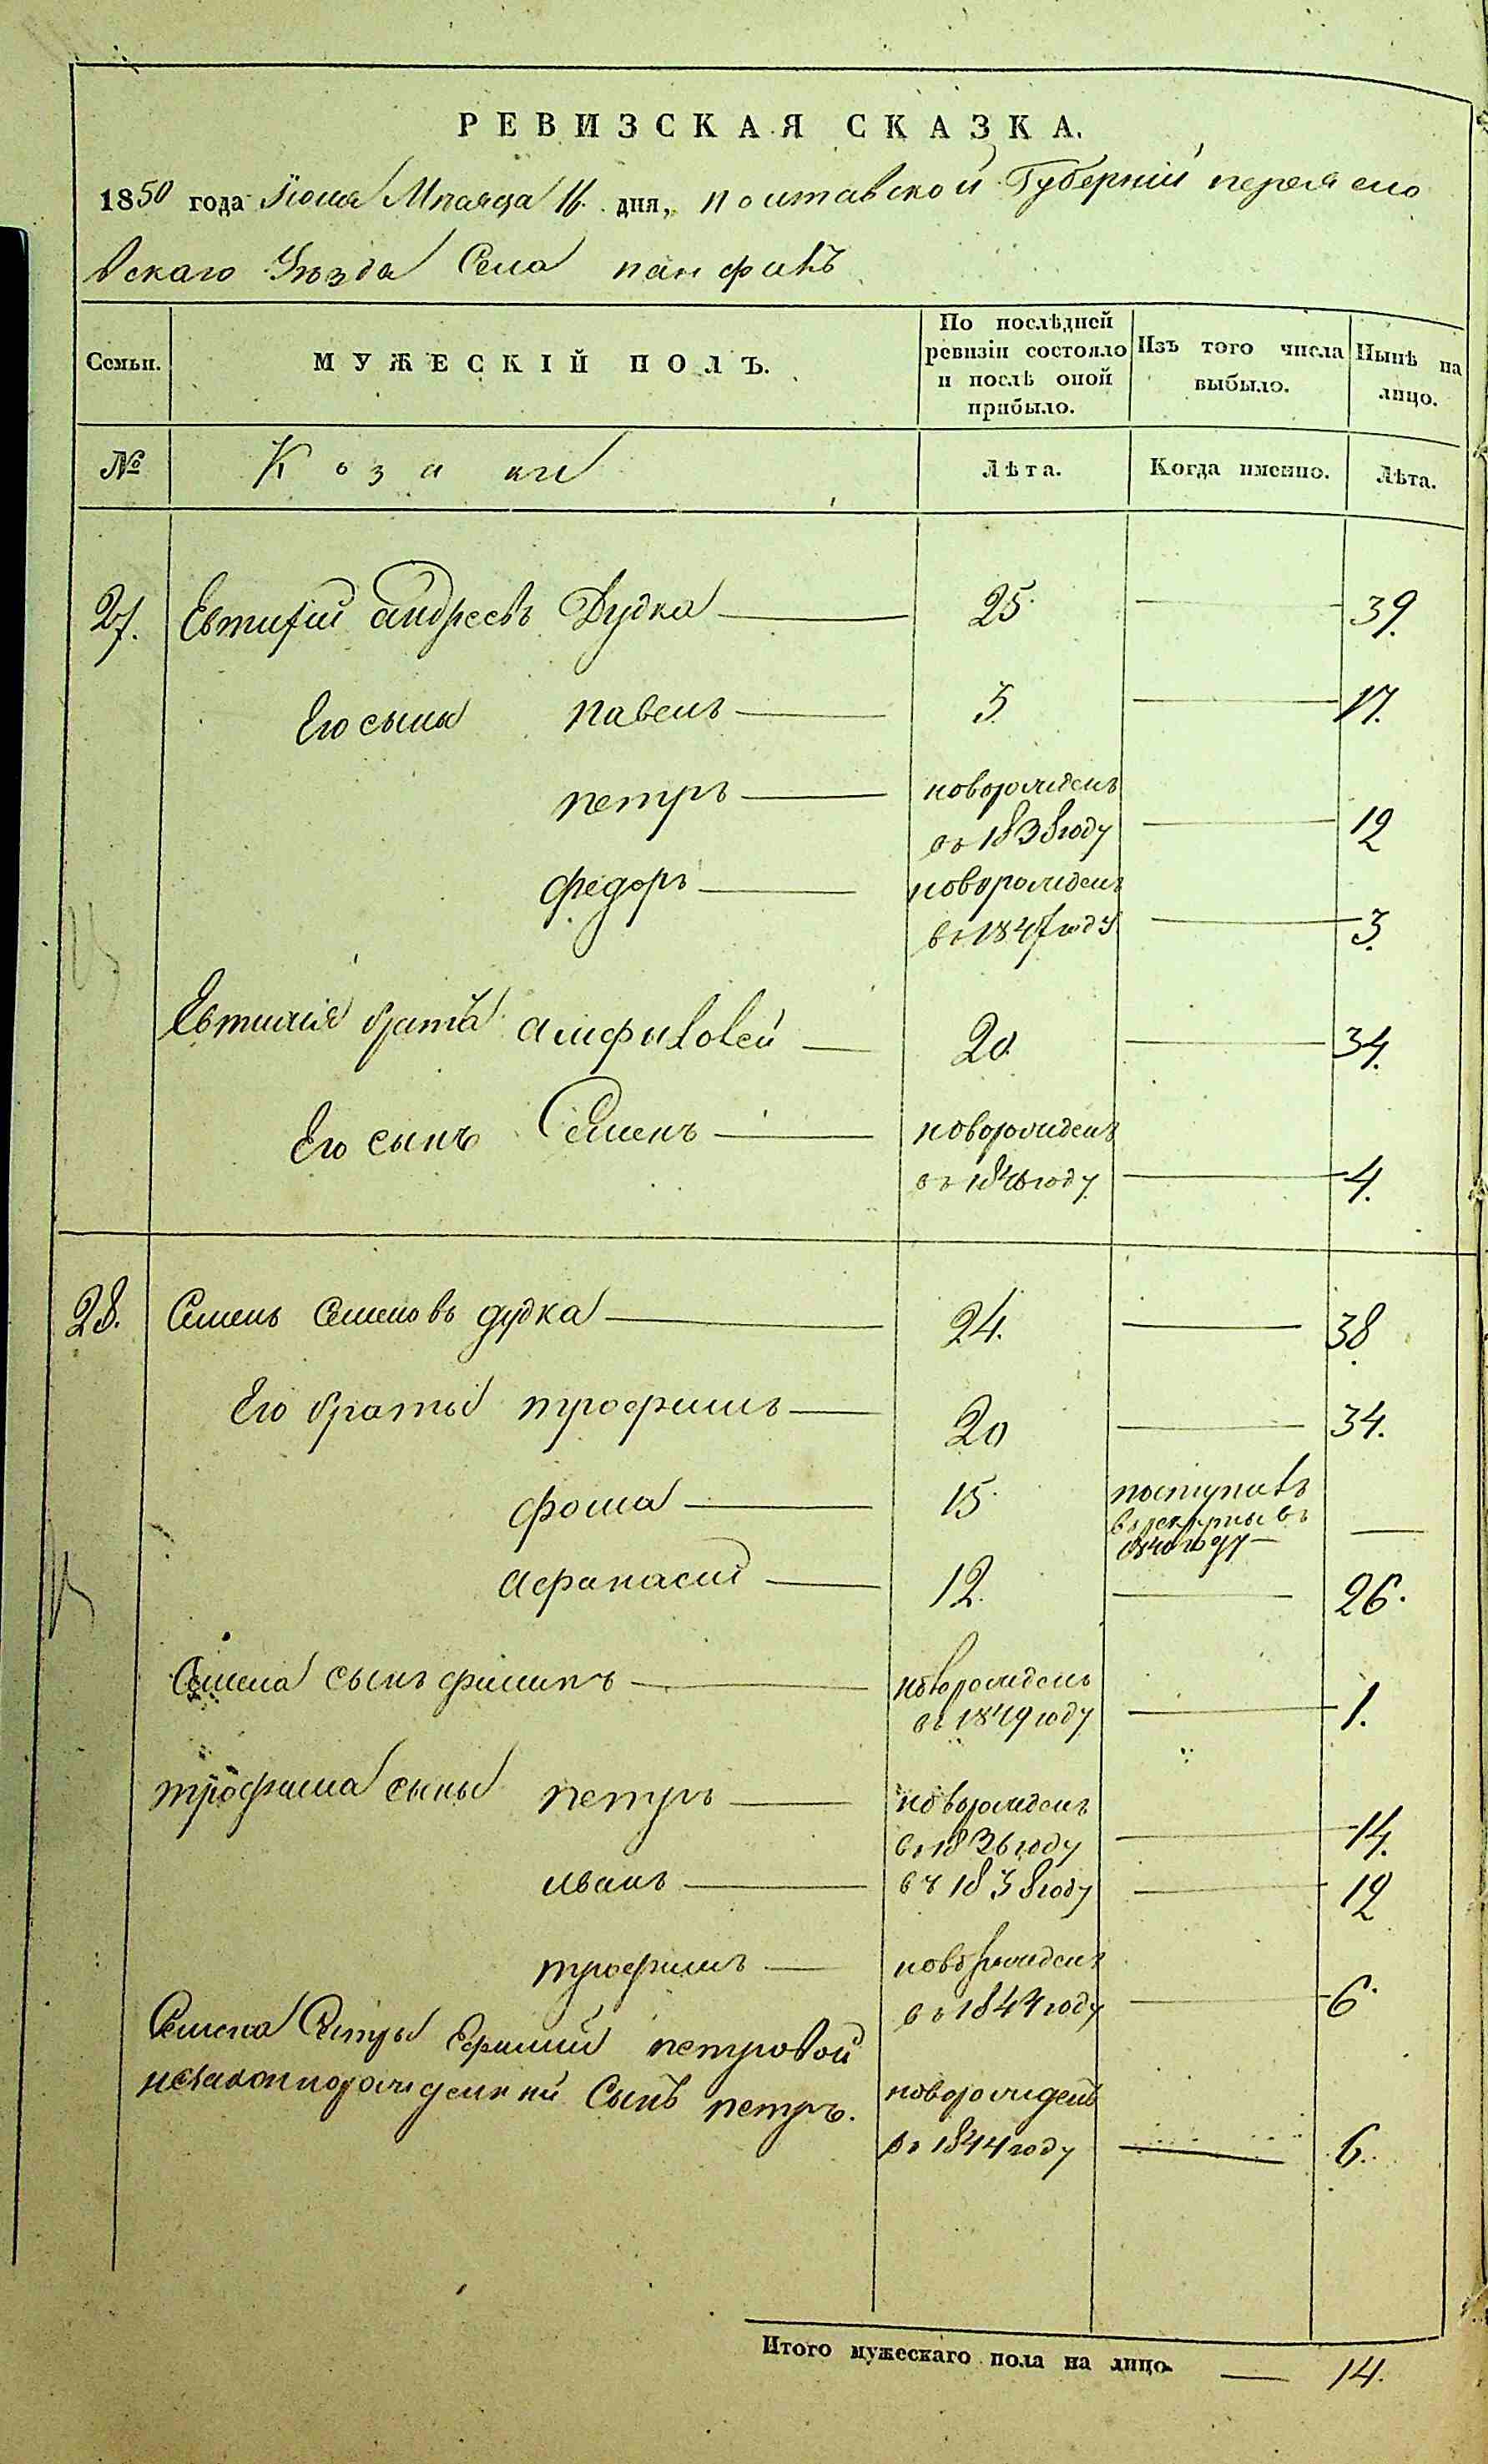 РЕВИЗСКАЯ СКАЗКА.
1850 года Июня Мѣсяца 16. дня, полтавской Губерніи переясло
вскаго Уѣзда Села панфилъ
Семьи. МУЖЕСКІЙ ПОЛЪ. По послѣдней ревизіи состояло и послѣ оной прибыло. Изъ того числа выбыло. Нынѣ на лицо.
№ Козаки Лѣта. Когда именно. Лѣта.
27. Евтифій андреевъ Дудка 25. 39.
Его сыны павелъ 3. 17.
петръ новорожденъ
въ 1838 году 12
федоръ новорожденъ
въ 1847 году 3.
Евтихія братъ амфилофей 20. 34.
Его сынъ Семенъ новорожденъ
въ 1846 году 4.
28. Семенъ Семеновъ дудка 24. 38
Его братья трофимъ 20 34.
фома 15. поступилъ
въ рекруты въ
1840 году
афанасий 12. 26.
Семена сынъ филипъ новорожденъ
въ 1849 году 1.
трофима сыны петръ новорожденъ
въ 1836 году 14.
иванъ въ 1838 году 12
трофимъ новорожденъ
въ 1844 году 6.
Семена Сестры Ефимии петровой
незаконнорожденний Сынъ петръ. новорожденъ
въ 1844 году 6.
Итого мужескаго пола на лицо 14.